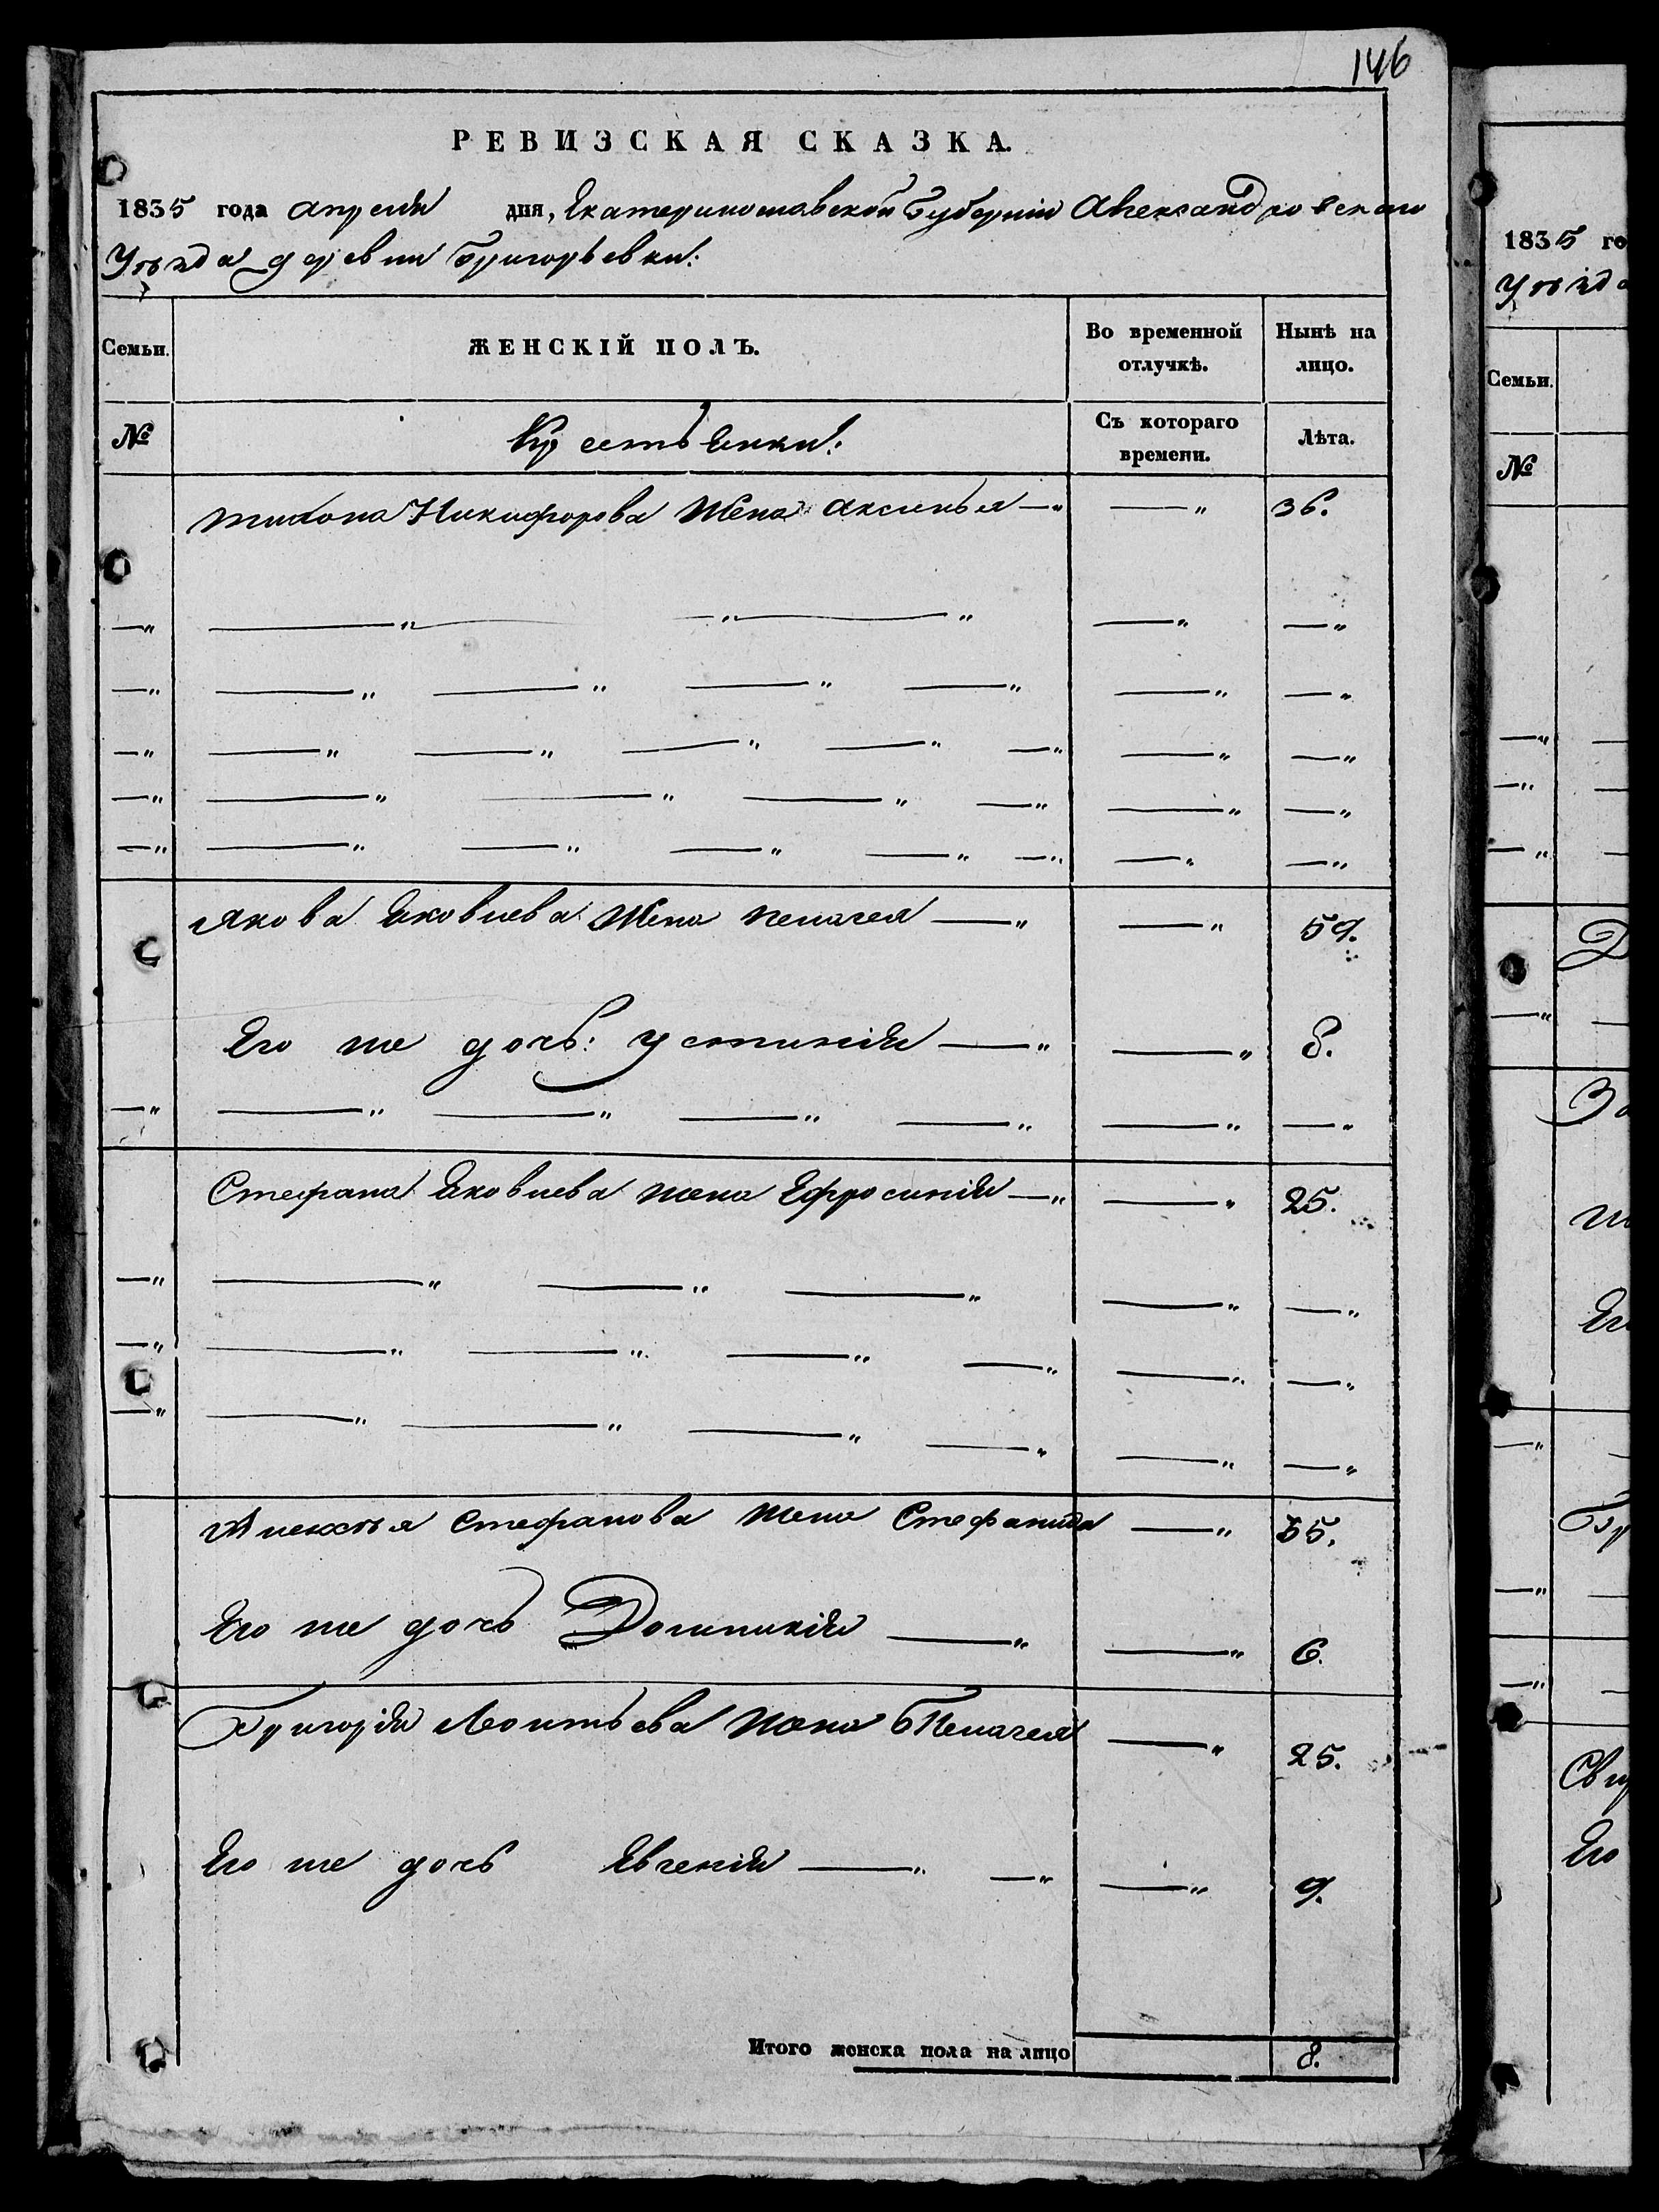 146
РЕВИЗСКАЯ СКАЗКА.
1835 года апреля дня, Екатеринославской Губернии Александровскаго
Уѣзда деревни Григорьевки:
Семьи. ЖЕНСКІЙ ПОЛЪ. Во временной отлучкѣ. Нынѣ на лицо.
№ Крестьянки: Съ котораго времени. Лѣта.
Тихона Никифорова Жена Аксинья —„ —„ 36.
Якова Яковлева Жена Пелагея —„ —„ 59.
Его же дочь: Устинія —„ —„ 8.
Стефана Яковлева жена Ефросинія —„ —„ 25.
Алексѣя Стефанова жена Стефанида —„ 35.
Его же дочь Домникія —„ —„ 6.
Григорія Леонтьева жена Пелагея —„ 25.
Его же дочь Евгенія —„ —„ —„ 9.
Итого женска пола на лицо 8.
1835 го
Уѣзда
Семьи.
№
Его